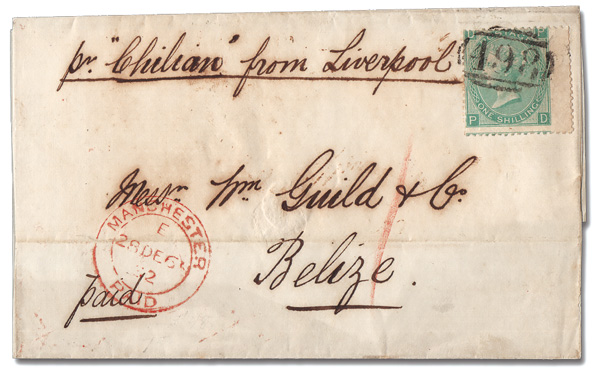 pr. "Chilian" from Liverpool
498
ONE SHILLING
P D
Messrs Wm Guild & Co.
MANCHESTER
E
28 DE 6
2
PAID
Belize.
paid